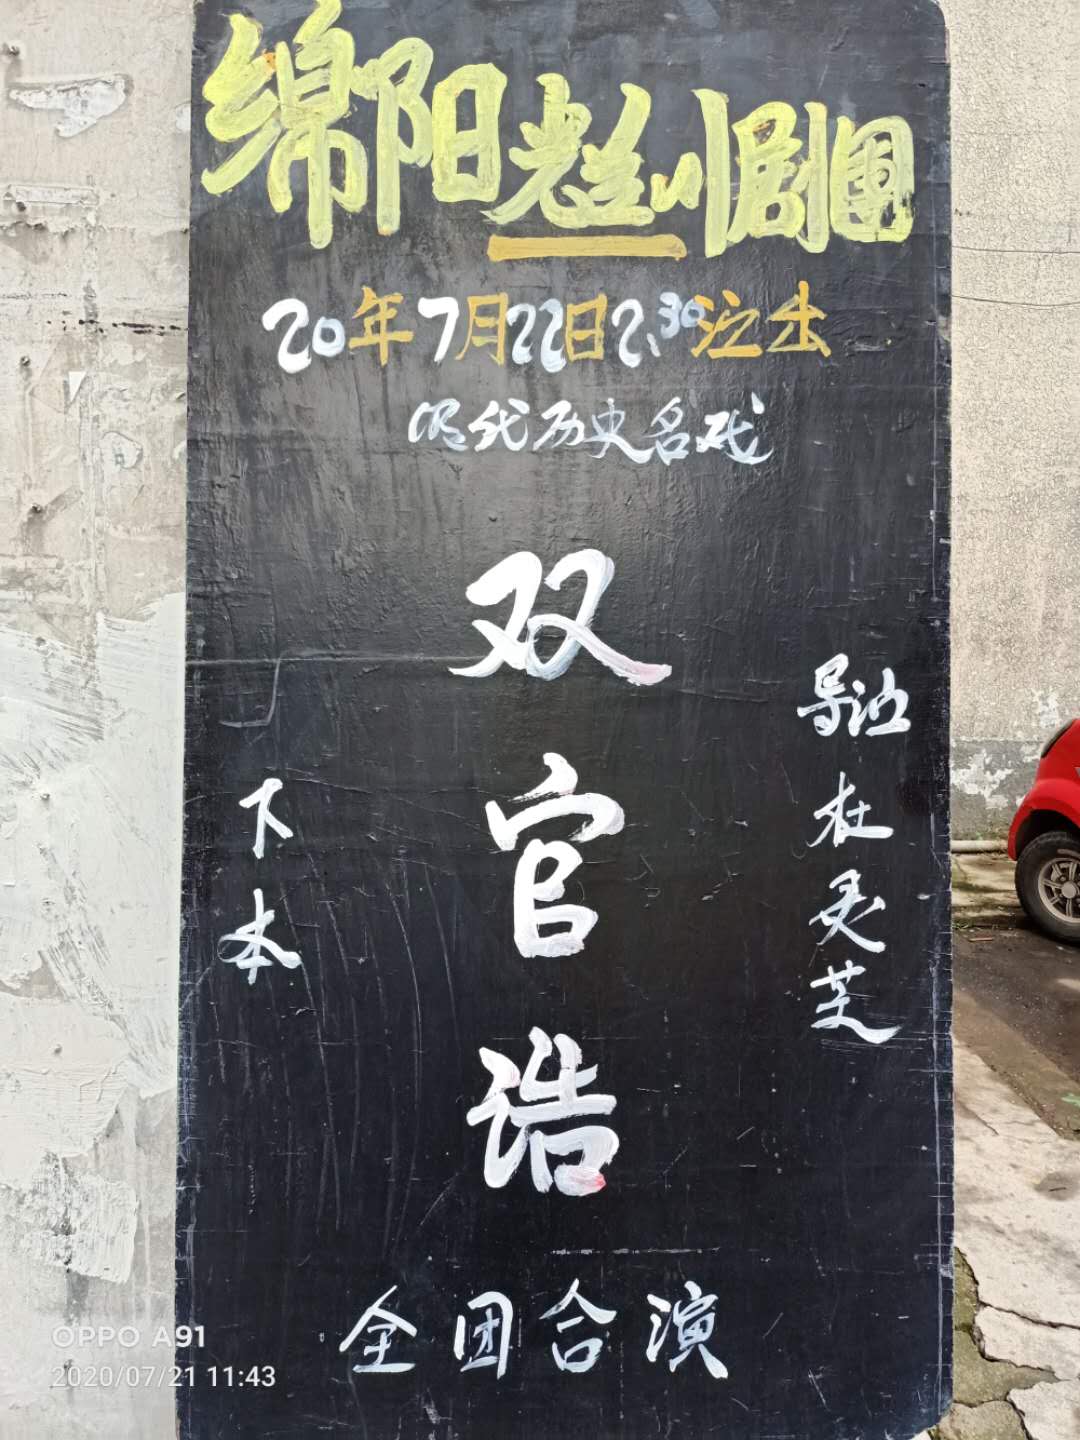 绵阳 川剧團
20年7月22日2:30演出
明代历史名戏
双官诰
导演 杜灵芝
下本
全团合演
OPPO A91
2020/07/21 11:43